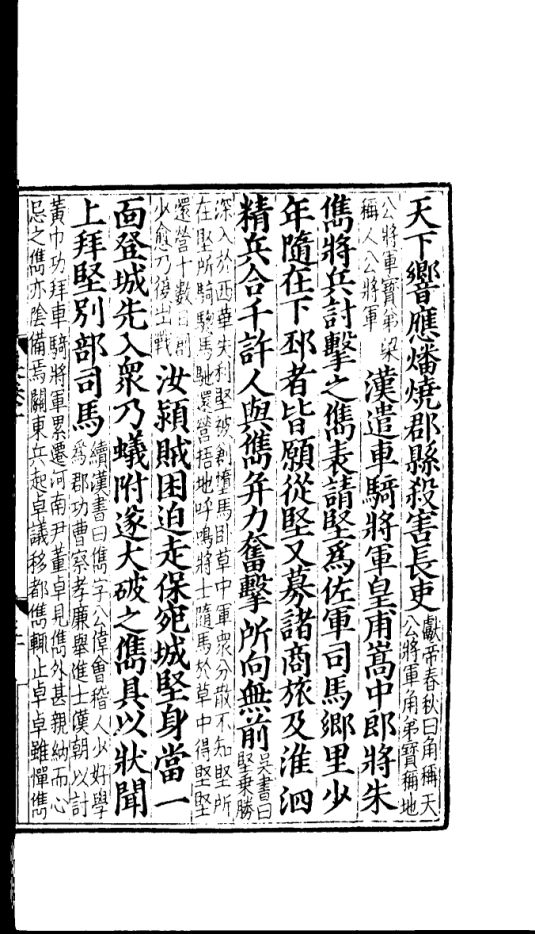 天下響應燔燒郡縣殺害長吏
獻帝春秋曰角稱天
公將軍角弟寶稱地
公將軍寶弟梁
稱人公將軍
漢遣車騎將軍皇甫嵩中郎將朱
儁將兵討擊之儁表請堅爲佐軍司馬鄉里少
年隨在下邳者皆願從堅又募諸商旅及淮泗
精兵合千許人與儁并力奮擊所向無前
吳書曰
堅乘勝
深入於西華失利堅被創墮馬卧草中軍衆分散不知堅所
在堅所騎驄馬馳還營捂地呼鳴將士隨馬於草中得堅堅
還營十數日創
少愈乃復出戰
汝潁賊困迫走保宛城堅身當一
面登城先入衆乃蟻附遂大破之儁具以狀聞
上拜堅別部司馬
續漢書曰儁字公偉會稽人少好學
爲郡功曹察孝廉舉進士漢朝以討
黃巾功拜車騎將軍累遷河南尹董卓見儁外甚親納而心
忌之儁亦陰備焉關東兵起卓議移都儁輒止卓卓雖憚儁